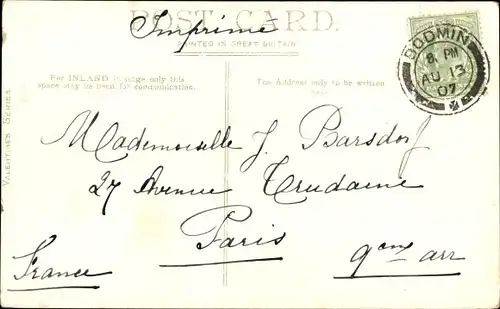 POST CARD.
Imprimé
PRINTED IN GREAT BRITAIN
BODMIN
8. PM
AU 13
07
For INLAND Postage only this
space may be used for communication.
The Address only to be written
here.
VALENTINES SERIES
Mademoiselle J. Barsdorf
27 Avenue Trudaine
Paris
9eme arr
France